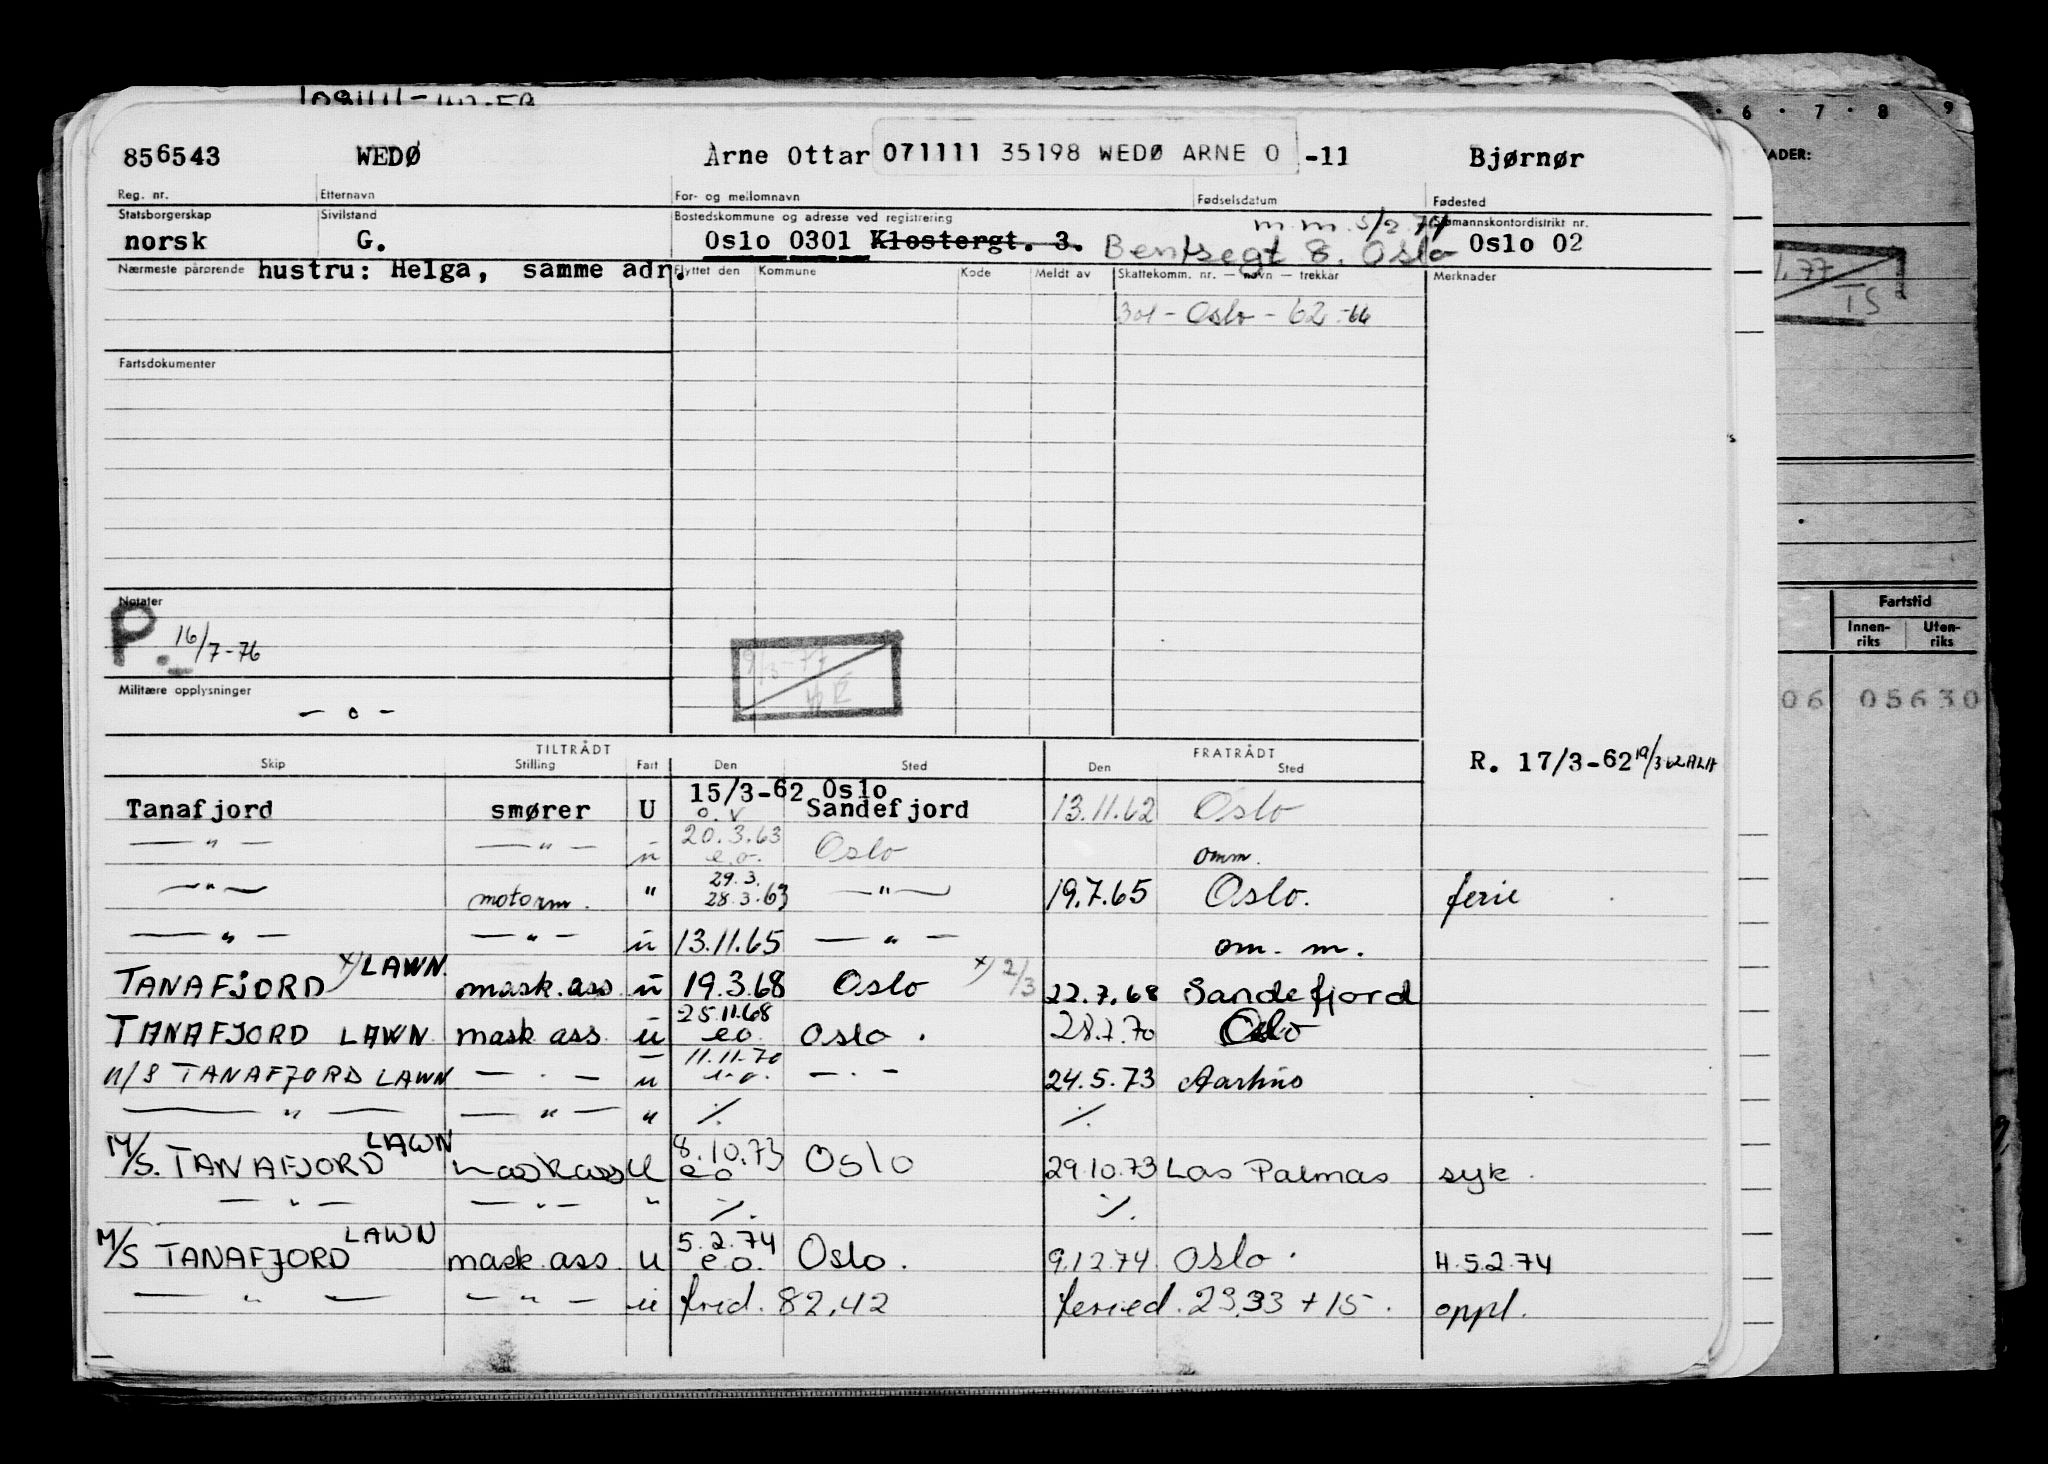 856543 WEDØ Arne Ottar 071111 35198 WEDØ ARNE O -11 Bjørnør
Reg. nr. Etternavn For- og mellomnavn Fødselsdatum Fødested
Statsborgerskap Sivilstand Bostedskommune og adresse ved registrering m.m. 5/2.74 Sjømannskontordistrikt nr.
norsk G. Oslo 0301 Klostergt. 3. Bentsegt 8. Oslo Oslo 02
Nærmeste pårørende hustru: Helga, samme adr. Flyttet den Kommune Kode Meldt av Skattekomm. nr. — navn — trekkår Merknader
301 - Oslo - 62 - 66
Fartsdokumenter
Notater
P. 16/7-76
9/3-77
Militære opplysninger
- o -
TILTRÅDT FRATRÅDT
Skip Stilling Fart Den Sted Den Sted
R. 17/3-62
15/3-62 Oslo
Tanafjord smører U o.v Sandefjord 13.11.62 Oslo
— " — — " — u 20.3.63 e.o. Oslo omm.
— " — motorm. " 29.3. 28.3.63 — " — 19.7.65 Oslo. ferie
— " — — " — u 13.11.65 — " — om. m.
TANAFJORD x/ LAWN. mask.ass u 19.3.68 Oslo x/ 2/3 22.7.68 Sandefjord
TANAFJORD LAWN mask ass. u 25.11.68 e.o. Oslo. 28.7.70 Oslo
M/S TANAFJORD LAWN — " — u 11.11.70 e.o. — " — 24.5.73 Aarhus
— " — — " — " ⁒ ⁒
M/S. TANAFJORD LAWN maskass U 8.10.73 eo Oslo 29.10.73 Las Palmas syk.
— " — — " — " ⁒ ⁒
M/S TANAFJORD LAWN mask.ass. U 5.2.74 e.o. Oslo. 9.12.74 Oslo. H.5.2.74
— " — — " — u frid. 82,42 feried. 23,33 + 15. oppl.
6 · 7 · 8 9
ADER:
77
TS
Fartstid
Innen-riks Uten-riks
06 05630